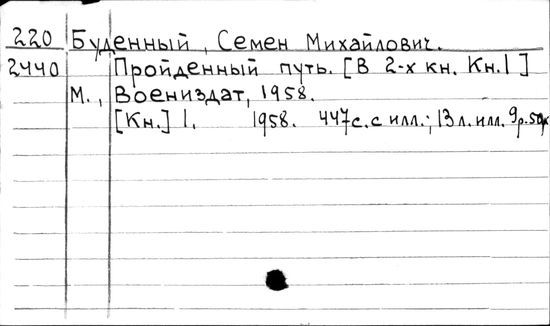 220 Буденный, Семен Михайлович.
2440 Пройденный путь. [В 2-х кн. Кн. 1]
М., Воениздат, 1958.
[Кн.] 1. 1958. 447с. с илл.; 13 л. илл. 9р.50к